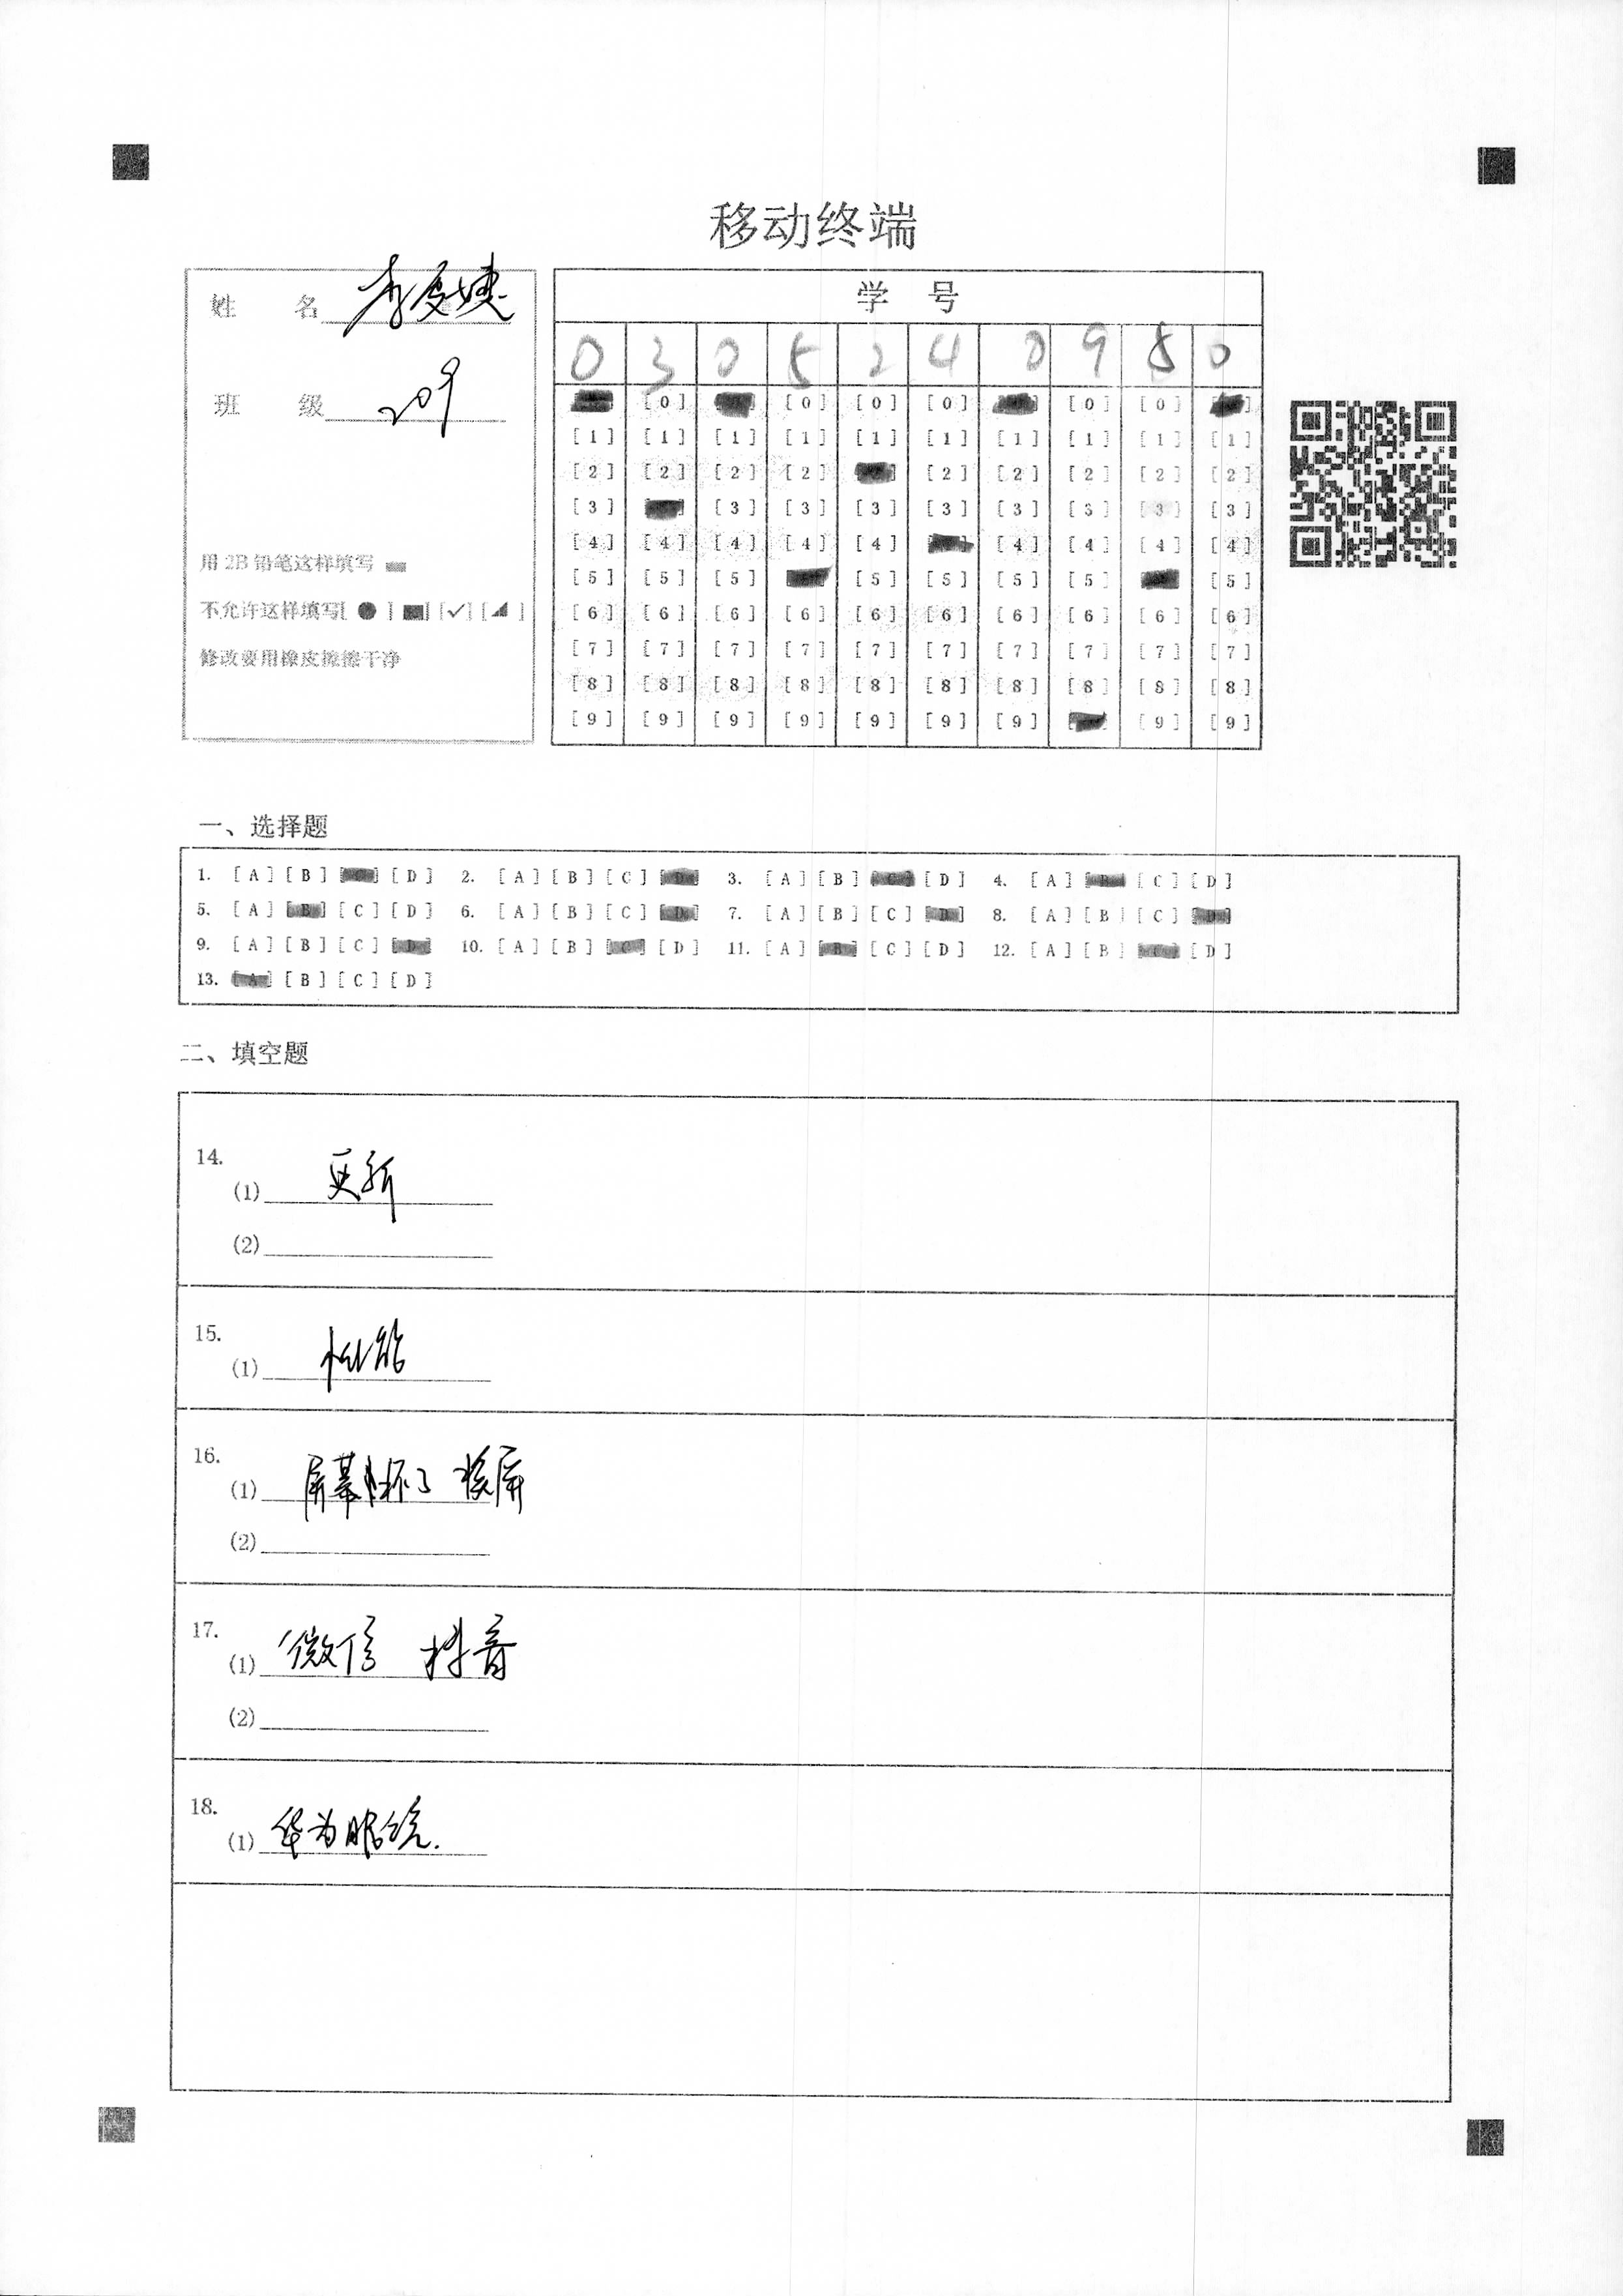 移动终端
姓 名 李
班 级 209
用 2B 铅笔这样填写
不允许这样填写[ ● ] [■] [✓] [◢ ]
修改要用橡皮擦擦干净
学 号
0 3 0 5 2 4 0 9 5 0
[0] [0] [0] [0] [0] [0]
[1] [1] [1] [1] [1] [1] [1] [1] [1] [1]
[2] [2] [2] [2] [2] [2] [2] [2] [2]
[3] [3] [3] [3] [3] [3] [3] [3] [3]
[4] [4] [4] [4] [4] [4] [4] [4] [4]
[5] [5] [5] [5] [5] [5] [5] [5]
[6] [6] [6] [6] [6] [6] [6] [6] [6] [6]
[7] [7] [7] [7] [7] [7] [7] [7] [7] [7]
[8] [8] [8] [8] [8] [8] [8] [8] [8] [8]
[9] [9] [9] [9] [9] [9] [9] [9] [9]
一、选择题
1. [A] [B] [C] [D] 2. [A] [B] [C] [D] 3. [A] [B] [C] [D] 4. [A] [B] [C] [D]
5. [A] [B] [C] [D] 6. [A] [B] [C] [D] 7. [A] [B] [C] [D] 8. [A] [B] [C] [D]
9. [A] [B] [C] [D] 10. [A] [B] [C] [D] 11. [A] [B] [C] [D] 12. [A] [B] [C] [D]
13. [A] [B] [C] [D]
二、填空题
14.
(1) 更新
(2)
15.
(1) 性能
16.
(1) 屏幕坏了 换屏
(2)
17.
(1) 微信 抖音
(2)
18.
(1) 华为